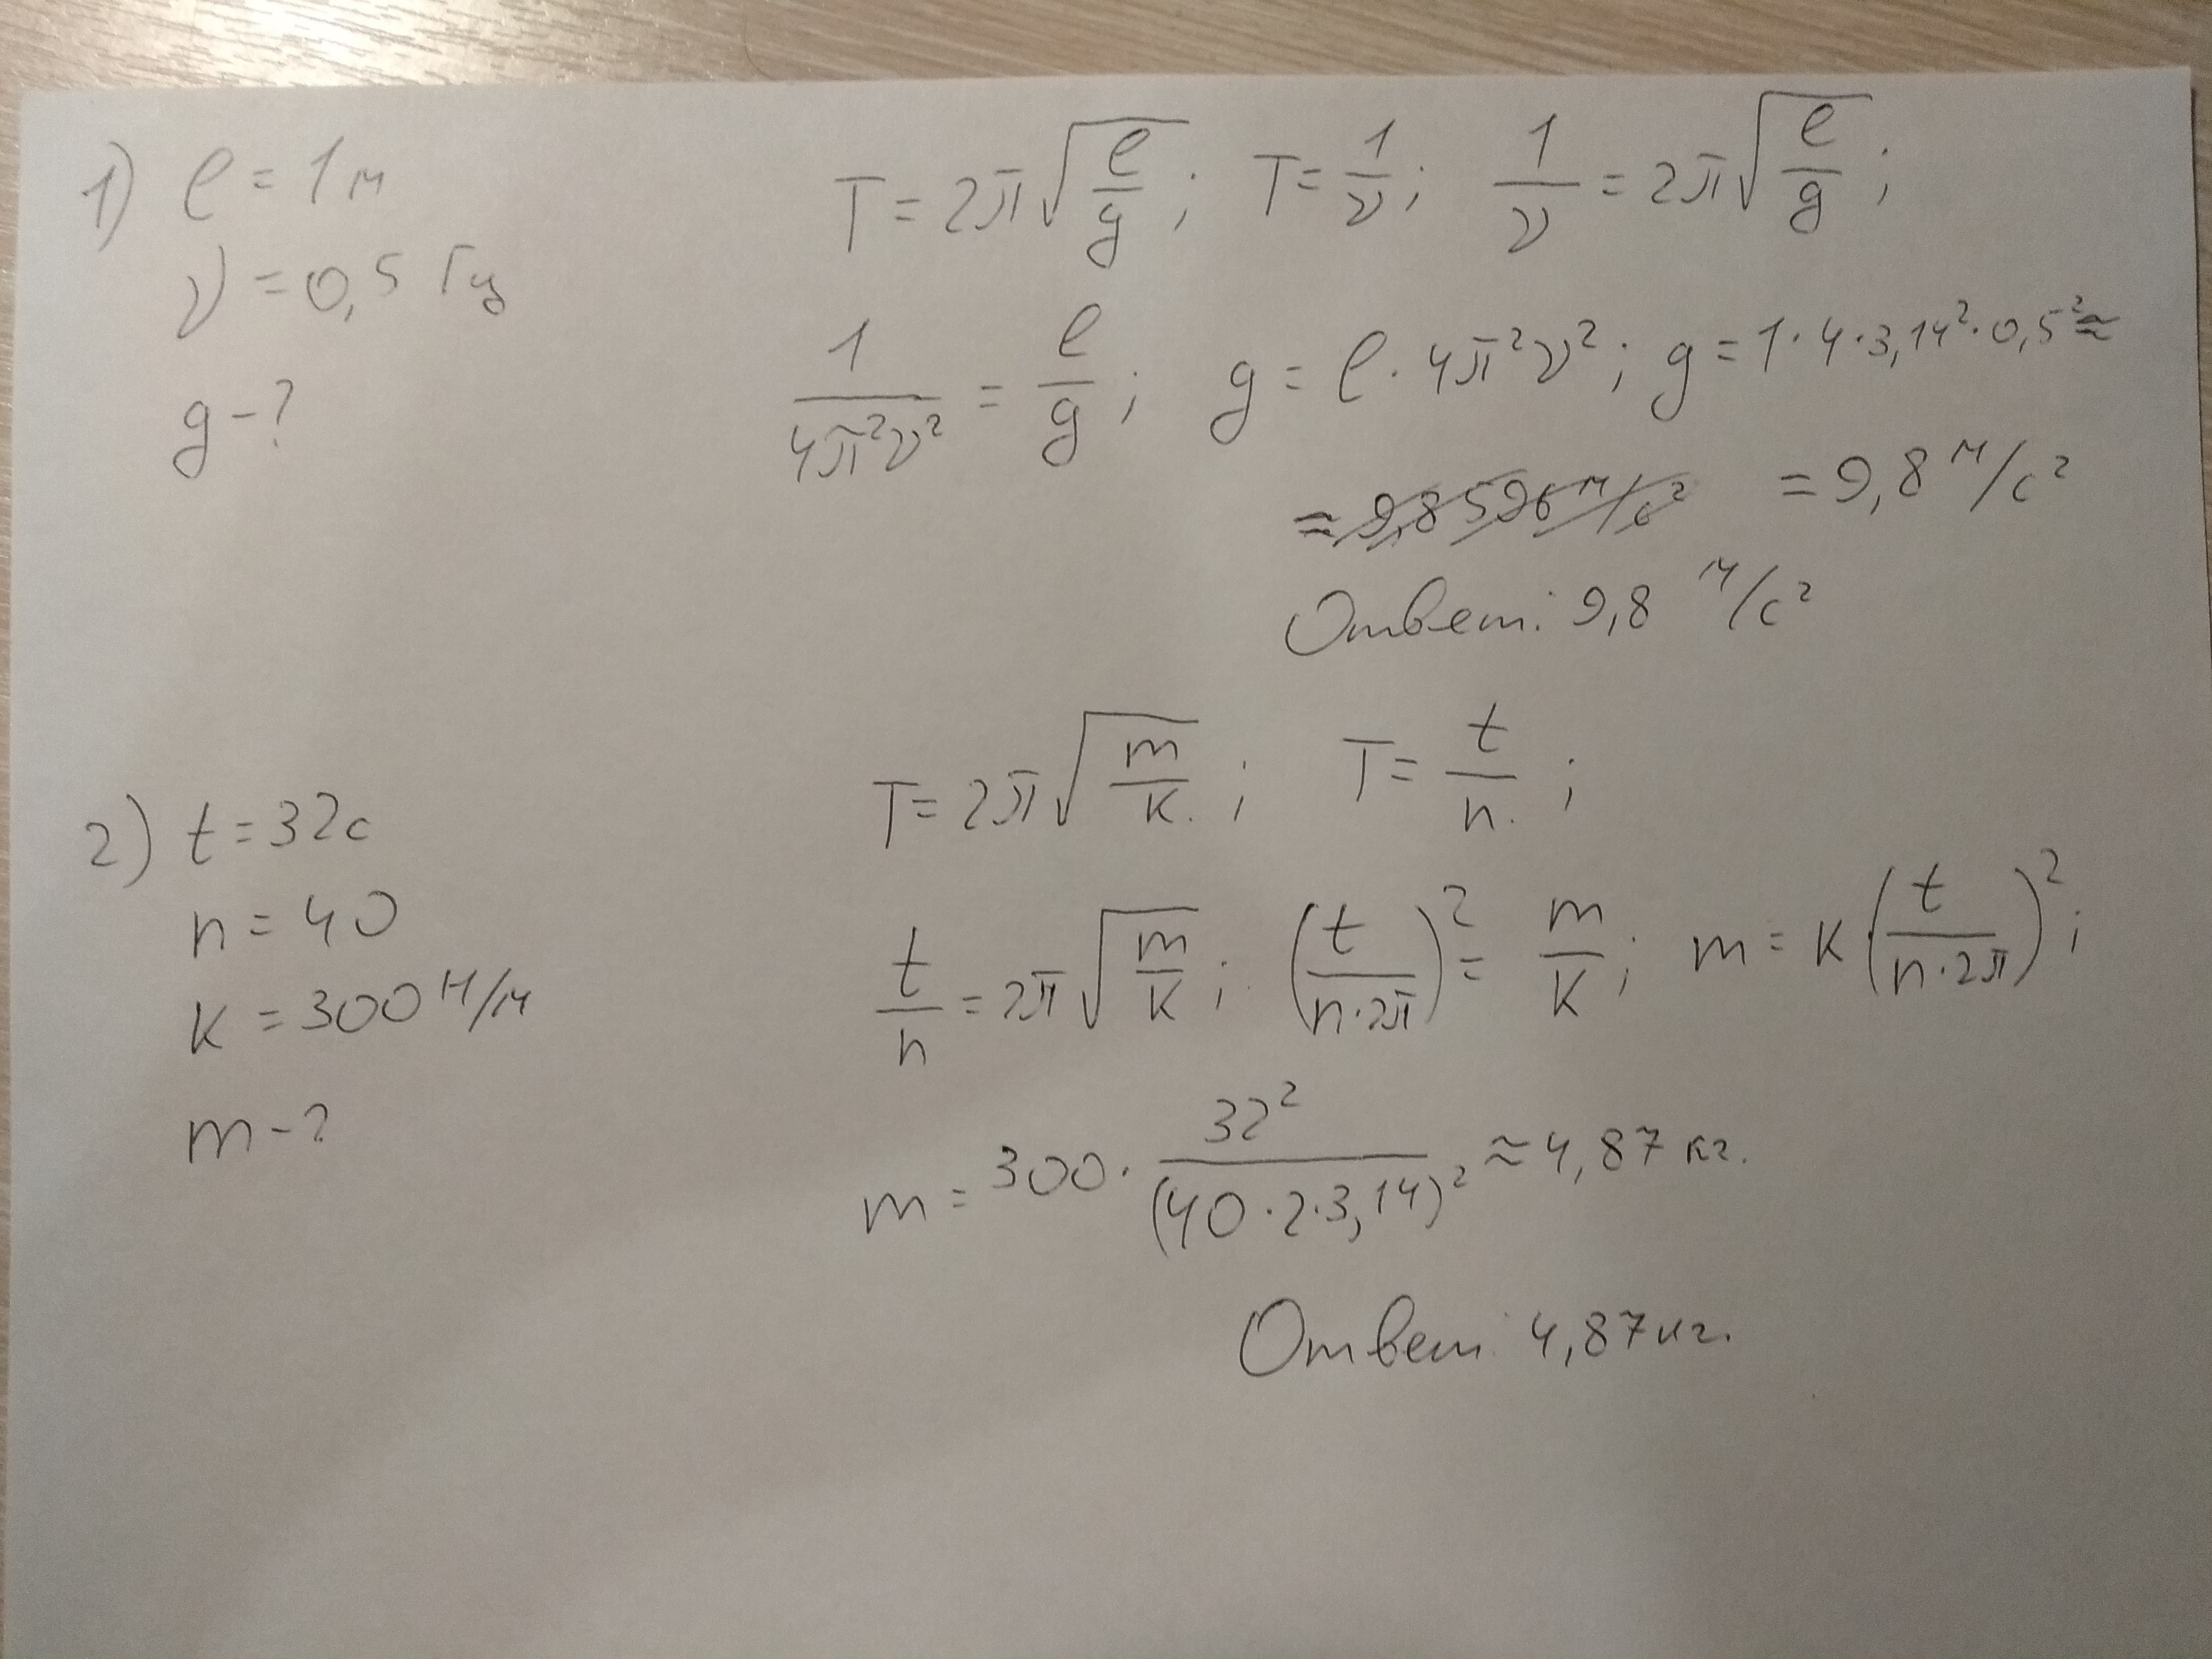 1) l = 1 м
ν = 0,5 Гц
g - ?
T = 2π√(l/g); T = 1/ν; 1/ν = 2π√(l/g);
1/(4π²ν²) = l/g; g = l · 4π²ν²; g = 1·4·3,14²·0,5² ≈
≈ 9,8596 м/с² = 9,8 м/с²
Ответ: 9,8 м/с²
2) t = 32 с
n = 40
к = 300 Н/м
m - ?
T = 2π√(m/к); T = t/n;
t/n = 2π√(m/к); (t/(n·2π))² = m/к; m = к·(t/(n·2π))²;
m = 300 · 32²/(40·2·3,14)² ≈ 4,87 кг.
Ответ: 4,87 кг.